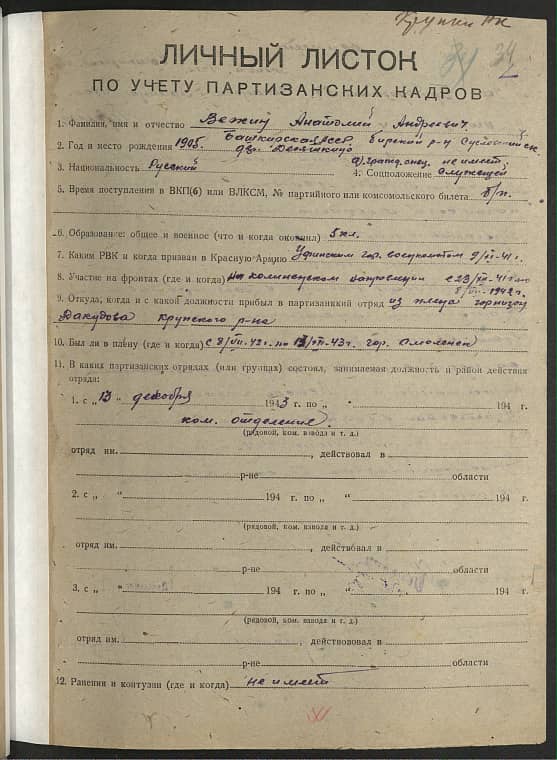 34
ЛИЧНЫЙ ЛИСТОК
ПО УЧЕТУ ПАРТИЗАНСКИХ КАДРОВ
1. Фамилия, имя и отчество Вежин Анатолий Андреевич.
2. Год и место рождения 1905 Башкирская АССР бирский р-н
дер.
3. Национальность Русский 4. Соцположение Служащий
гражд. не имеет
5. Время поступления в ВКП(б) или ВЛКСМ, № партийного или комсомольского билета б/п.
6. Образование: общее и военное (что и когда окончил) 5 кл.
7. Каким РВК и когда призван в Красную Армию Уфимским гор. военкоматом 41 г.
8. Участие на фронтах (где и когда) на направлении с 23/ 41 г. по
8/VII-1942 г.
9. Откуда, когда и с какой должности прибыл в партизанский отряд из плена гарнизон
крупского р-на
10. Был ли в плену (где и когда) с 8/VII-42 г. по 43 г. гор. Смоленск
11. В каких партизанских отрядах (или группах) состоял, занимаемая должность и район действия
отряда:
1. с „13" декабря 1943 г. по „ " 194 г.
ком. отделения.
(рядовой, ком. взвода и т. д.)
отряд им. , действовал в
р-не области
2. с „ " 194 г. по „ " 194 г.
(рядовой, ком. взвода и т. д.)
отряд им. , действовал в
р-не области
3. с „ " 194 г. по „ " 194 г.
(рядовой, ком. взвода и т. д.)
отряд им. , действововал в
р-не области
12. Ранения и контузии (где и когда) не имеет